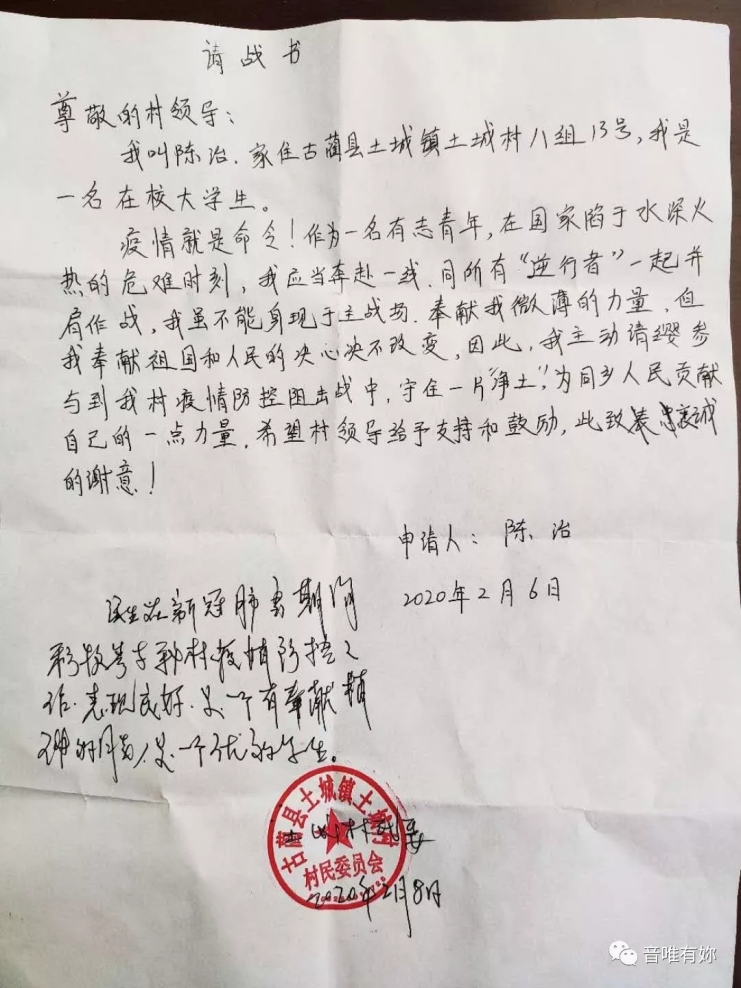 请战书
尊敬的村领导：
我叫陈治，家住古蔺县土城镇土城村八组13号，我是
一名在校大学生。
疫情就是命令！作为一名有志青年，在国家陷于水深火
热的危难时刻，我应当奔赴一线，同所有“逆行者”一起并
肩作战，我虽不能身现于主战场，奉献我微薄的力量，但
我奉献祖国和人民的决心决不改变，因此，我主动请缨参
与到我村疫情防控阻击战中，守住一片“净土”，为同乡人民贡献
自己的一点力量，希望村领导给予支持和鼓励，此致衷诚
的谢意！
申请人：陈治
2020年2月6日
该生在新冠肺炎期间
积极参与到村疫情防控工
作，表现良好，是一个有奉献精
神的同志，是一个优秀的学生。
古蔺县土城镇土城村
村民委员会
2020年2月8日
音唯有妳